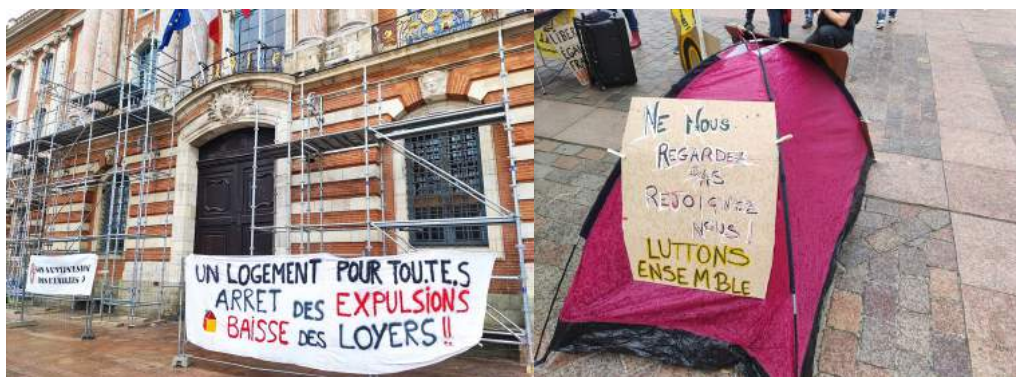 UN LOGEMENT POUR TOUTE.S
ARRET DES EXPULSIONS
BAISSE DES LOYERS !!
NE NOUS
REGARDEZ
PAS
REJOIGNEZ
NOUS !
LUTTONS
ENSEMBLE